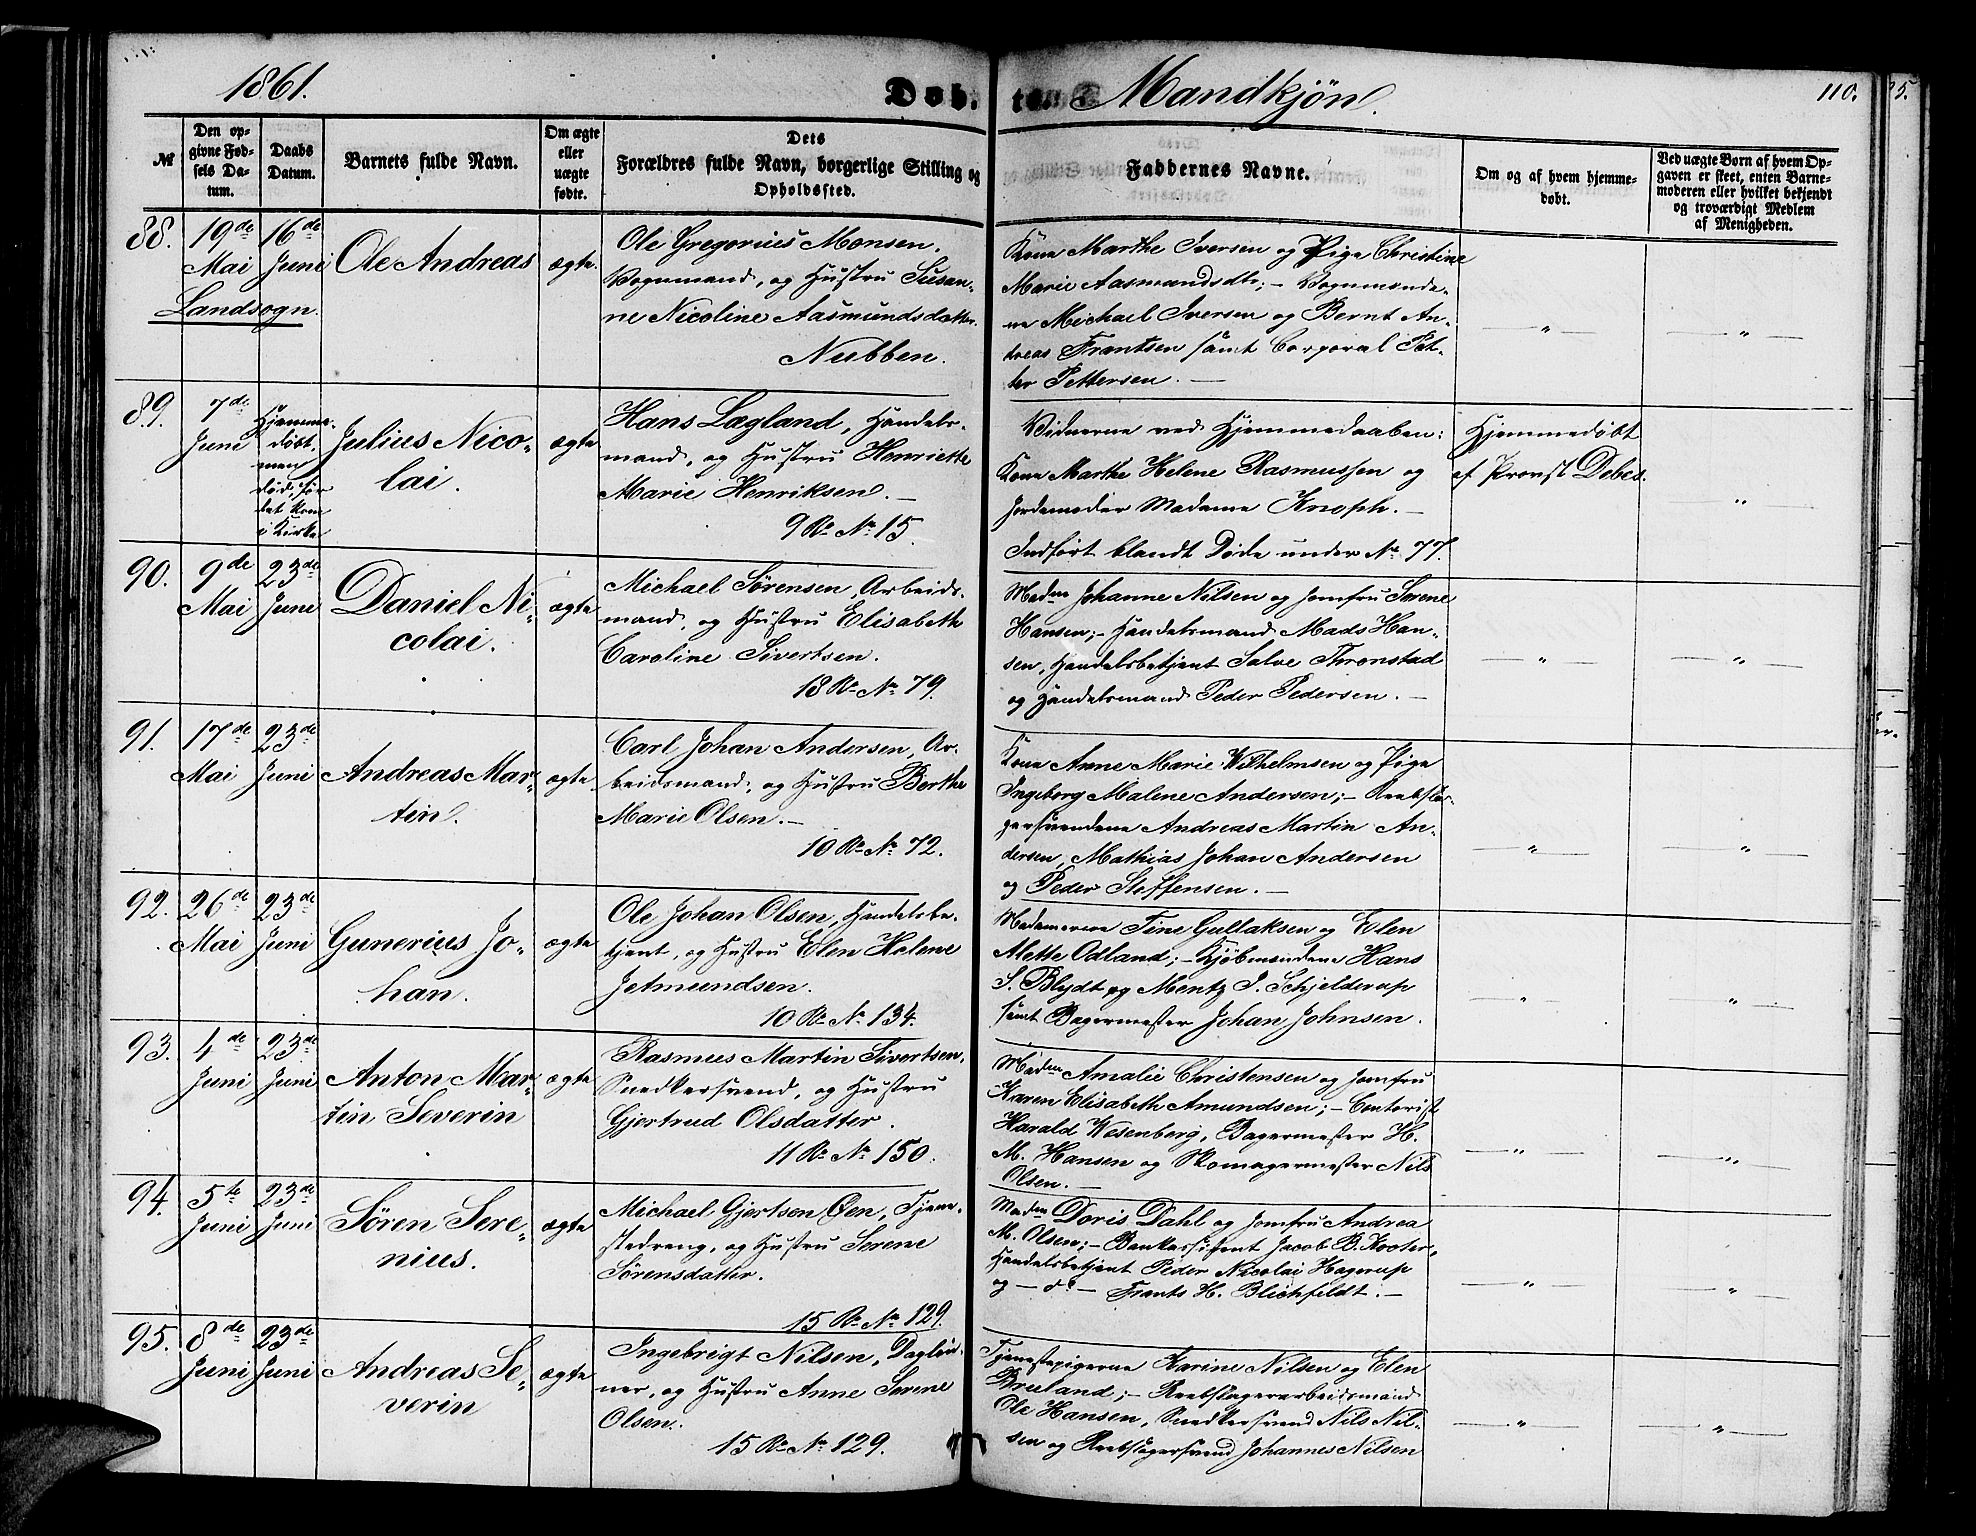 1861.
Døb-
te. Mandkjøn.
110.
№
Den op-
givne Fød-
sels Da-
tum.
Daabs
Datum.
Barnets fulde Navn.
Om ægte
eller
uægte
fødte.
Dets
Forældres fulde Navn, borgerlige Stilling og
Opholdssted.
Faddernes Navne.
Om og af hvem hjemme-
døbt.
Ved uægte Børn af hvem Op-
gaven er skeet, enten Barne-
moderen eller hvilket bekjendt
og troværdigt Medlem
af Menigheden.
88.
19de
Mai
Landsogn.
16de
Juni
Ole Andreas
ægte.
Ole Gregorius Monsen,
Vognmand, og Hustru Susan-
ne Nicoline Aasmundsdatter.
Nubben.
Kona Marthe Iversen og Pige Christine
Marie Aasmundsdtr; – Vognmænde-
ne Michael Iversen og Bernt An-
dreas Frantsen samt Corporal Pet-
ter Pettersen. –
– " –
– " –
89.
7de
Juni
Hjemme-
døbt,
men
død, før
det kom
i Kirke
Julius Nico-
lai.
ægte
Hans Lægland, Handels-
mand, og Hustru Henriette
Marie Henriksen. –
9 Re № 15.
Vidnerne ved Hjemmedaaben:
Kona Marthe Helene Rasmussen og
Jordemoder Madame Knoph. –
Indført blandt Døde under № 77.
Hjemmedøbt
af Provst Debes.
– " –
90.
9de
Mai
23de
Juni
Daniel Ni-
colai.
ægte
Michael Sørensen, Arbeids-
mand, og Hustru Elisabeth
Caroline Sivertsen.
13 Re № 79.
Madme Johanne Nilsen og Jomfru Serene
Hansen; – Handelsmand Mads Han-
sen, Handelsbetjent Salve Thronstad
og Handelsmand Peder Pedersen. –
– " –
– " –
91.
17de
Mai
23de
Juni
Andreas Mar-
tin.
ægte
Carl Johan Andersen, Ar-
beidsmand, og Hustru Berthe
Marie Olsen. –
10 Re № 72.
Kona Anne Marie Wilhelmsen og Pige
Ingeborg Malene Andersen; – Reebsla-
gersvendene Andreas Martin An-
dersen, Mathias Johan Andersen
og Peder Steffensen. –
– " –
– " –
92.
26de
Mai
23de
Juni
Gunerius Jo-
han.
ægte
Ole Johan Olsen, Handelsbe-
tjent, og Hustru Elen Helene
Jetmundsen.
10 Re № 134.
Madamerne Tine Gullaksen og Elen
Alette Odland; – Kjøbmændene Hans
S. Blydt og Mentz I. Schjelderup
samt Bagermester Johan Johnsen.
– " –
– " –
93.
4de
Juni
23de
Juni
Anton Mar-
tin Severin
ægte
Rasmus Martin Sivertsen,
Snedkersvend, og Hustru
Gjertrud Olsdatter.
11 Re № 150.
Madme Amalie Christensen og Jomfru
Karen Elisabeth Amundsen; – Contorist
Harald Wesenberg, Bagermester H.
M. Hansen og Skomagermester Nils
Olsen. –
– " –
– " –
94.
5te
Juni
23de
Juni
Søren Sere-
nius.
ægte
Michael Gjertsen Øen, Tjene-
stedreng, og Hustru Serene
Sørensdatter.
15 Re № 129.
Madm Doris Dahl og Jomfru Andrea
M. Olsen; – Bankassistent Jacob B. Kooter,
Handelsbetjent Peder Nicolai Hagerup
og – do – Frants H. Blichfeldt. –
– " –
– " –
95.
8de
Juni
23de
Juni
Andreas Se-
verin
ægte
Ingebrigt Nilsen, Dagløn-
ner, og Hustru Anne Serene
Olsen.
15 Re № 129.
Tjenestepigerne Karine Nilsen og Elen
Brueland; – Reebslagerarbeidsmand
Ole Hansen, Snedkersvend Nils Nil-
sen og Reebslagersvend Johannes Nilsen
– " –
– " –